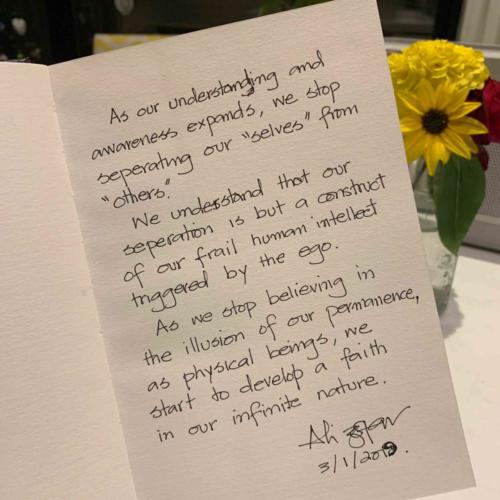 As our understanding and
awareness expands, we stop
seperating our "selves" from
"others".
We understand that our
seperation is but a construct
of our frail human intellect
triggered by the ego.
As we stop believing in
the illusion of our permanence,
as physical beings, we
start to develop a faith
in our infinite nature.
Ali
3/1/201